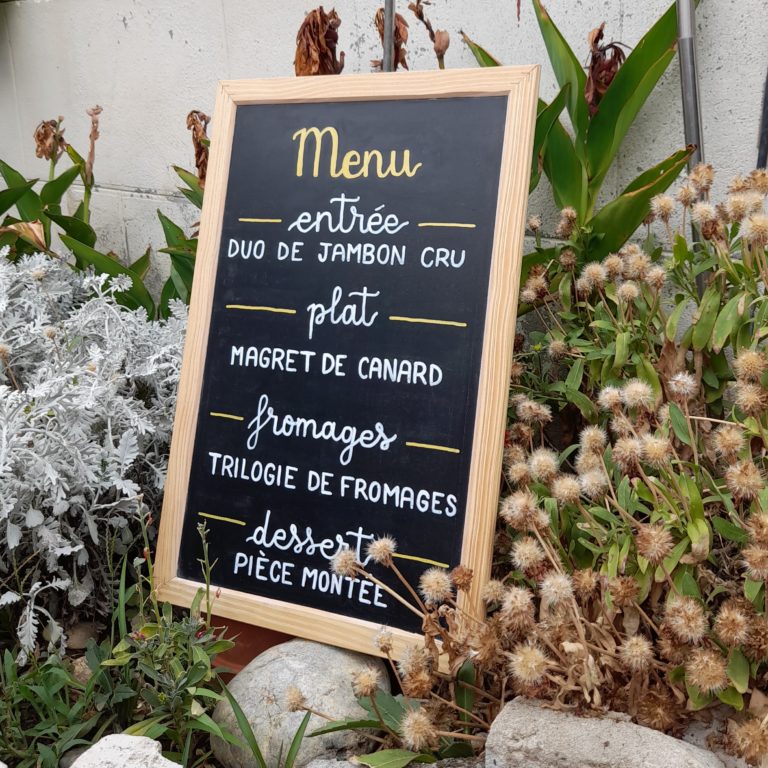 Menu
entrée
DUO DE JAMBON CRU
plat
MAGRET DE CANARD
fromages
TRILOGIE DE FROMAGES
dessert
PIÈCE MONTÉE